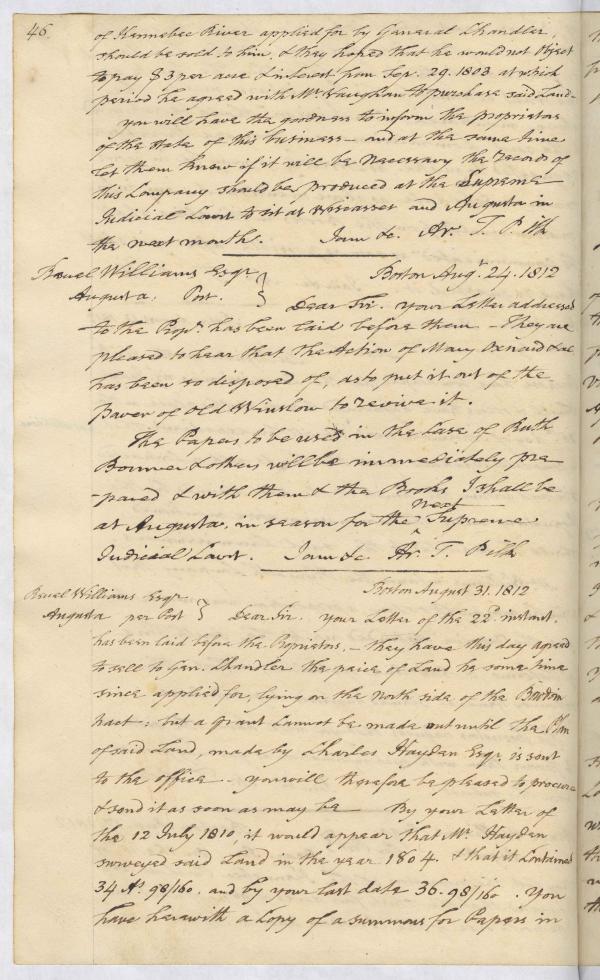 46.
of Kennebec River applied for by General Chandler,
should be sold to him, & they hoped that he would not Object
to pay $3 per acre & interest from Sep. 29. 1803 at which
period he agreed with Mr. Vaughan to purchase said Land -
you will have the goodness to inform the proprietors
of the state of this business - and at the same time
let them know if it will be necessary the records of
this Company should be produced at the Supreme
Judicial Court to sit at Wiscasset and Augusta in
the next month. I am &c. Ar. T. Pith
Reuel Williams Esqr.
Augusta. Post. } Boston Augt. 24. 1812
Dear Sir. your Letter addressed
to the Proprs. has been laid before them - They are
pleased to hear that the Action of Mary Oxnard & al
has been so disposed of, as to put it out of the
power of Old Winslow to revive it.
The Papers to be used in the Case of Ruth
Bonner & others will be immediately pre-
-pared & with them & the Books I shall be
at Augusta, in season for the next Supreme
Judicial Court. I am &c. Ar. T. Pith
Boston August 31. 1812
Reuel Williams Esqr.
Augusta per Post } Dear Sir. your Letter of the 22d. instant.
has been laid before the Proprietors, - they have this day agreed
to sell to Gen. Chandler the peice of Land he some time
since applied for, lying on the North side of the Bowdoin
tract; but a grant Cannot be made out until the Plan
of said Land, made by Charles Hayden Esqr. is sent
to the office - you will therefore be pleased to procure
& send it as soon as may be - By your Letter of
the 12 July 1810, it would appear that Mr. Hayden
surveyed said Land in the year 1804. & that it Contained
34 As. 98/160. and by your last date 36. 98/160. You
have herewith a Copy of a summons for Papers in